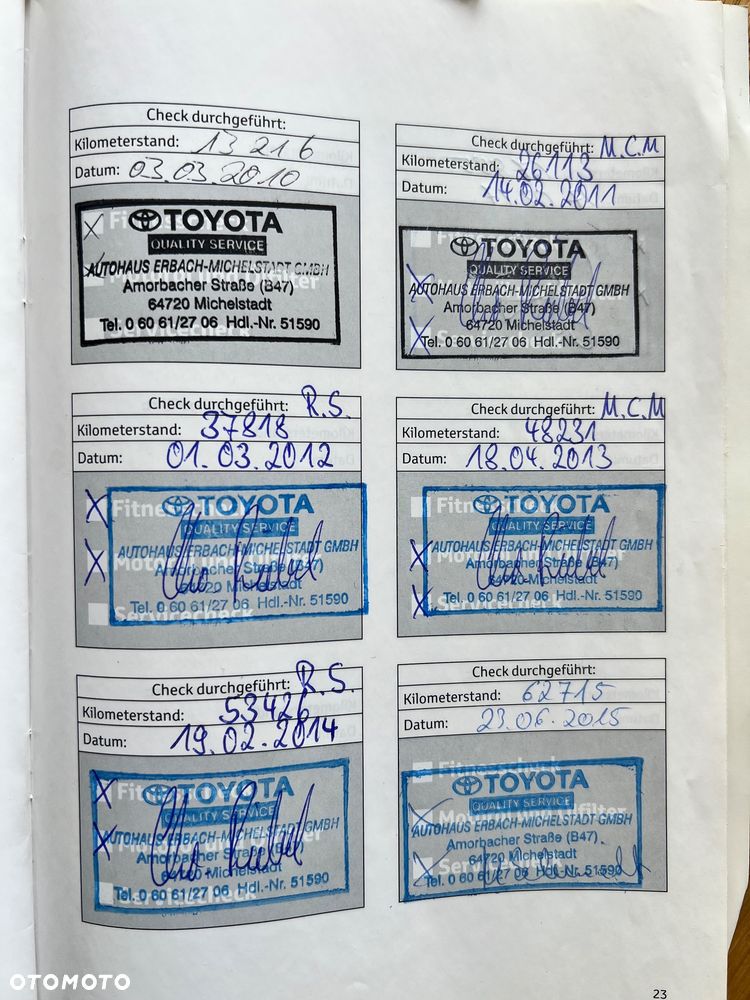 Check durchgeführt:
Kilometerstand: 13216
Datum: 03.03.2010
Fitness
TOYOTA
QUALITY SERVICE
AUTOHAUS ERBACH-MICHELSTADT GMBH
Amorbacher Straße (B47)
64720 Michelstadt
Tel. 0 60 61/27 06 Hdl.-Nr. 51590
Servicecheck
Check durchgeführt: M.C.M
Kilometerstand: 26113
Datum: 14.02.2011
TOYOTA
QUALITY SERVICE
AUTOHAUS ERBACH-MICHELSTADT GMBH
Amorbacher Straße (B47)
64720 Michelstadt
Tel. 0 60 61/27 06 Hdl.-Nr. 51590
Check durchgeführt: R.S.
Kilometerstand: 37818
Datum: 01.03.2012
TOYOTA
QUALITY SERVICE
AUTOHAUS ERBACH-MICHELSTADT GMBH
Amorbacher Straße (B47)
64720 Michelstadt
Tel. 0 60 61/27 06 Hdl.-Nr. 51590
Servicecheck
Check durchgeführt: M.C.M
Kilometerstand: 48231
Datum: 18.04.2013
TOYOTA
QUALITY SERVICE
AUTOHAUS ERBACH-MICHELSTADT GMBH
Amorbacher Straße (B47)
64720 Michelstadt
Tel. 0 60 61/27 06 Hdl.-Nr. 51590
Servicecheck
Check durchgeführt: R.S.
Kilometerstand: 53426
Datum: 19.02.2014
TOYOTA
QUALITY SERVICE
AUTOHAUS ERBACH-MICHELSTADT GMBH
Amorbacher Straße (B47)
64720 Michelstadt
Tel. 0 60 61/27 06 Hdl.-Nr. 51590
Servicecheck
Check durchgeführt:
Kilometerstand: 62715
Datum: 23.06.2015
TOYOTA
QUALITY SERVICE
AUTOHAUS ERBACH-MICHELSTADT GMBH
Amorbacher Straße (B47)
64720 Michelstadt
Tel. 0 60 61/27 06 Hdl.-Nr. 51590
23
OTOMOTO